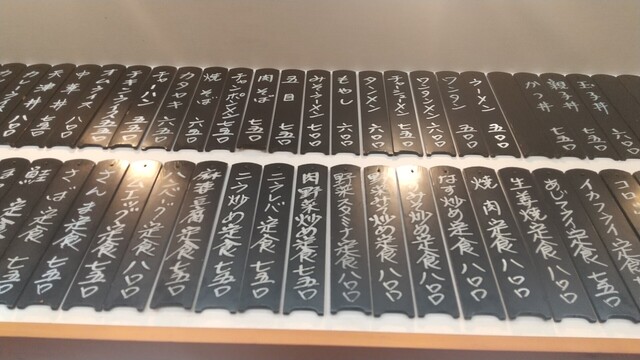 ラーメン 五〇〇
ワンタン 五〇〇
ワンタンメン 六〇〇
チャーシューメン 七五〇
タンメン 六〇〇
もやし 六〇〇
みそラーメン 七〇〇
五目 七五〇
肉そば 七五〇
チャンポンメン 七五〇
焼そば 六五〇
カタヤキ 七五〇
チャーハン 六五〇
チキンライス 七五〇
オムライス 八〇〇
中華丼 八〇〇
天津丼 八〇〇
イカフライ定食 七五〇
あじフライ定食 八〇〇
生姜焼定食 八〇〇
焼肉定食 八〇〇
なす炒め定食 八〇〇
野菜スタミナ定食 八〇〇
肉野菜炒め定食 七五〇
ニラレバ定食 七五〇
ニラ炒め定食 七五〇
麻婆豆腐定食 七五〇
ハムエッグ定食 八〇〇
さんま定食 七五〇
さば定食 七五〇
鮭定食 七五〇